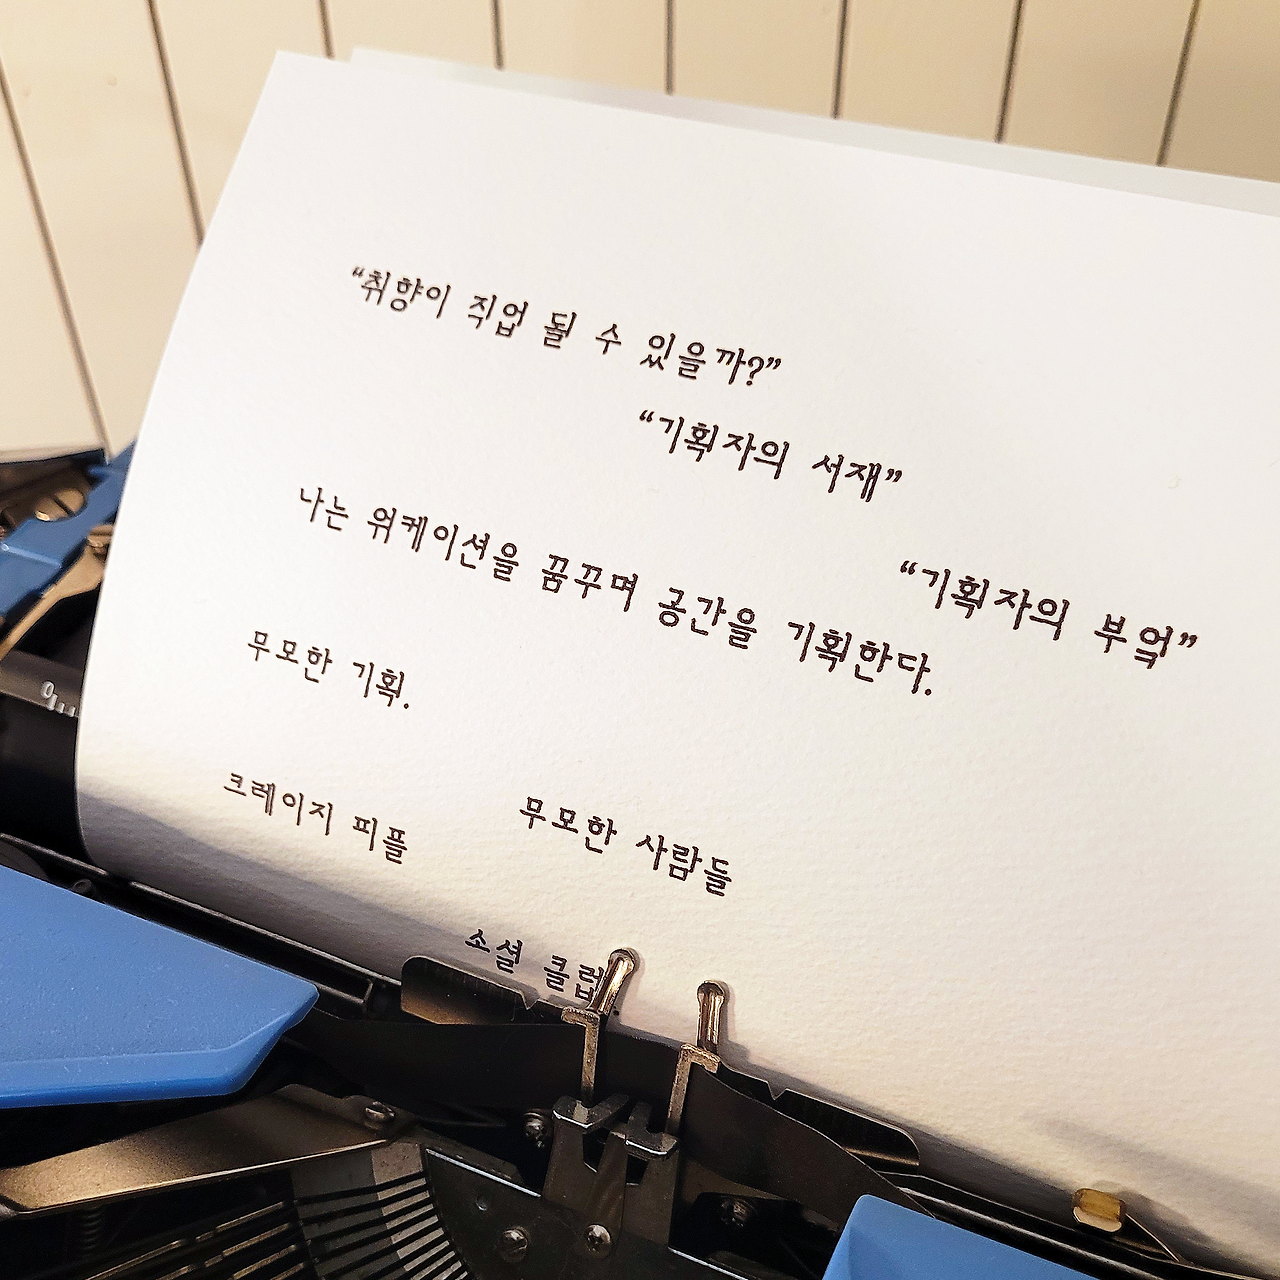 “취향이 직업 될 수 있을까?”
“기획자의 서재”
“기획자의 부엌”
나는 워케이션을 꿈꾸며 공간을 기획한다.
무모한 기획.
크레이지 피플
무모한 사람들
소셜 클럽